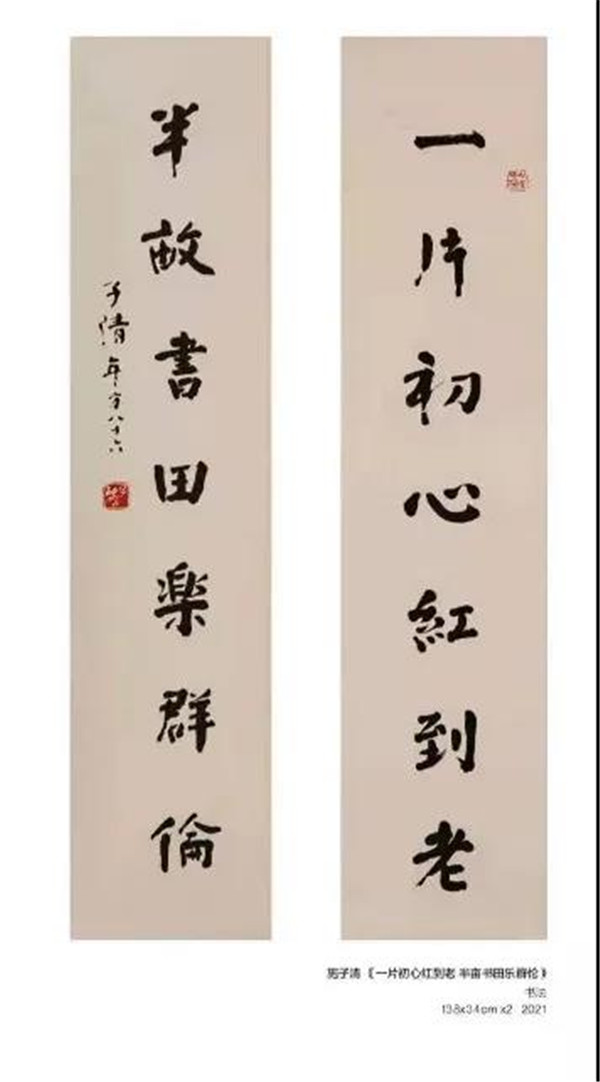 一片初心紅到老
半畝書田楽群倫
子清年方八十六
施子清 《一片初心红到老 半亩书田乐群伦》
书法
138x34cm x2 2021